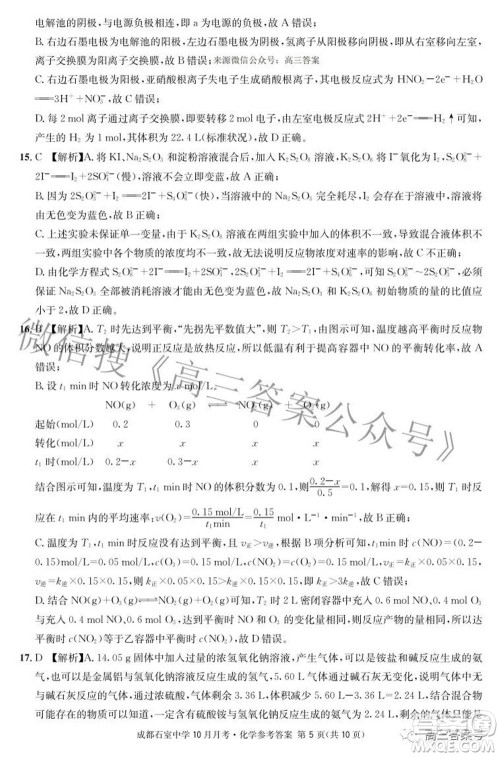 电解池的阴极，与电源负极相连，即 a 为电源的负极，故 A 错误；
B. 右边石墨电极为电解池的阳极，左边石墨电极为阴极，氢离子从阳极移向阴极，即从右室移向左室，离子交换膜为阳离子交换膜，故 B 错误；来源微信公众号：高三答案
C. 右边石墨电极为阳极，亚硝酸根离子失电子生成硝酸根离子，其电极反应式为 HNO₂－2e⁻＋H₂O
══3H⁺＋NO₃⁻，故 C 错误；
D. 每 2 mol 离子通过离子交换膜，则电路中转移 2 mol 电子，由阴极反应式为 2H⁺＋2e⁻══H₂↑可知，产生的 H₂ 为 1 mol，其体积为 22.4 L(标准状况)，故 D 正确。
15. C 【解析】A. 将 KI、Na₂S₂O₃ 和淀粉溶液混合后，加入 K₂S₂O₈ 溶液，K₂S₂O₈ 将 I⁻ 氧化为 I₂，S₂O₈²⁻＋
2I⁻══I₂＋2SO₄²⁻(慢)，溶液不会立即变蓝，故 A 正确；
B. 因为 2S₂O₃²⁻＋I₂══S₄O₆²⁻＋2I⁻(快)，当溶液中的 Na₂S₂O₃ 完全耗尽后，I₂ 才会与溶液中的淀粉显色，由无色变为蓝色，故 B 正确；
C. 上述实验未保证单一变量，因 K₂S₂O₈ 溶液在两组实验中加入的体积不一致，导致混合溶液总体积不一致，两组实验中各个物质的浓度均不一致，故无法说明浓度对速率的影响，故 C 不正确；
D. 由化学方程式 S₂O₈²⁻＋2I⁻══I₂＋2SO₄²⁻、2S₂O₃²⁻＋I₂══S₄O₆²⁻＋2I⁻可知 S₂O₈²⁻～2S₂O₃²⁻，必须保证 Na₂S₂O₃ 全部被消耗溶液才能变蓝，故 Na₂S₂O₃ 和 K₂S₂O₈ 初始物质的量的比值应小于 2，故 D 正确。
16. B 【解析】A. T₂ 时先达到平衡，“先拐先平数值大”，则 T₂＞T₁，由图示可知，温度越高平衡时反应物 NO 的体积分数越大，说明正反应是放热反应，所以低温有利于提高容器中 NO 的平衡转化率，故 A 错误；
B. 设 t₁ min 时 NO 转化浓度为 x mol/L，
NO(g) ＋ O₃(g) ⇌ NO₂(g) ＋ O₂(g)
起始(mol/L) 0.2 0.3 0 0
转化(mol/L) x x x x
t₁ 时(mol/L) 0.2－x 0.3－x x x
结合图示可知，温度为 T₁、t₁ min 时 NO 的体积分数为 0.1，则(0.2－x)/0.5＝0.1，解得 x＝0.15，则 T₁ 时反
应在 t₁ min 内的平均速率：v(O₂)＝0.15 mol/L / t₁ min＝0.15/t₁ mol·L⁻¹·min⁻¹，故 B 正确；
C. 温度为 T₁，t₁ min 时反应没有达到平衡，且 v正＞v逆，根据 B 项分析可知，t₁ min 时，c(NO)＝(0.2－
0.15)mol/L＝0.05 mol/L，c(O₃)＝0.15 mol/L，c(NO₂)＝c(O₂)＝0.15 mol/L，v正＝k正×0.05×0.15，
v逆＝k逆×0.15×0.15，则 k正×0.05×0.15＞k逆×0.15×0.15，所以 k正＞3k逆，故 C 错误；
D. 结合 NO(g)＋O₃(g)⇌NO₂(g)＋O₂(g)可知，反应前后气体体积不变，则反应产物的量相同，所以达平衡时 c(O₂)等于乙容器中平衡时 c(O₂)，故 D 错误。
17. D 【解析】A. 14.05 g 固体中加入过量的浓氢氧化钠溶液，产生气体，可以是铵盐和碱反应生成的氨气，也可以是金属铝与氢氧化钠溶液反应生成的氢气，5.60 L 气体通过盛有碱石灰的干燥管，气体中无与碱石灰反应的气体，剩余气体 3.36 L，体积减少 5.60 L－3.36 L＝2.24 L，结合生成的气体通过浓硫酸体积减少，说明生成的气体一定含有氨气，体积为 2.24 L，剩余气体 3.36 L 为氢气
成都石室中学 10 月月考·化学参考答案 第 5 页(共 10 页)
微信搜《高三答案公众号》
高三答案号